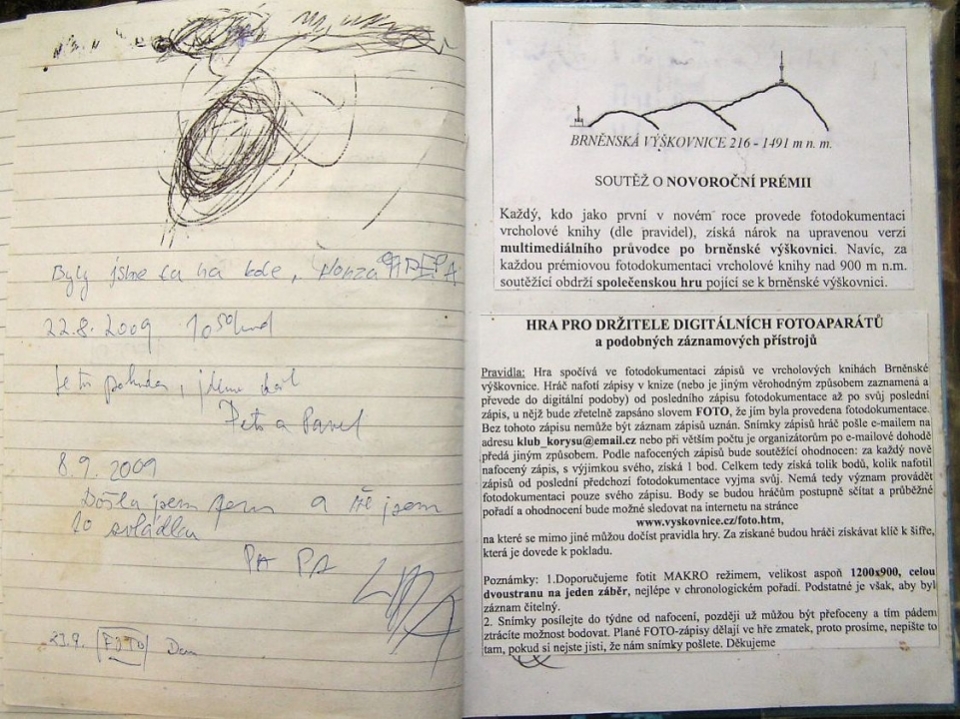 Byly jsme tu na kole, Honza
22.8. 2009 10
Je tu pohoda, jdeme dál
Petr a Pavel
8.9. 2009
Došla jsem sem a že jsem
to zvládla
PA PA
23.9. FOTO Dan
BRNĚNSKÁ VÝŠKOVNICE 216 - 1491 m n. m.
SOUTĚŽ O NOVOROČNÍ PRÉMII
Každý, kdo jako první v novém roce provede fotodokumentaci
vrcholové knihy (dle pravidel), získá nárok na upravenou verzi
multimediálního průvodce po brněnské výškovnici. Navíc, za
každou prémiovou fotodokumentaci vrcholové knihy nad 900 m n.m.
soutěžící obdrží společenskou hru pojící se k brněnské výškovnici.
HRA PRO DRŽITELE DIGITÁLNÍCH FOTOAPARÁTŮ
a podobných záznamových přístrojů
Pravidla: Hra spočívá ve fotodokumentaci zápisů ve vrcholových knihách Brněnské
výškovnice. Hráč nafotí zápisy v knize (nebo je jiným věrohodným způsobem zaznamená a
převede do digitální podoby) od posledního zápisu fotodokumentace až po svůj poslední
zápis, u nějž bude zřetelně zapsáno slovem FOTO, že jím byla provedena fotodokumentace.
Bez tohoto zápisu nemůže být záznam zápisů uznán. Snímky zápisů hráč pošle e-mailem na
adresu klub_korysu@email.cz nebo při větším počtu je organizátorům po e-mailové dohodě
předá jiným způsobem. Podle nafocených zápisů bude soutěžící ohodnocen: za každý nově
nafocený zápis, s výjimkou svého, získá 1 bod. Celkem tedy získá tolik bodů, kolik nafotil
zápisů od poslední předchozí fotodokumentace vyjma svůj. Nemá tedy význam provádět
fotodokumentaci pouze svého zápisu. Body se budou hráčům postupně sčítat a průběžné
pořadí a ohodnocení bude možné sledovat na internetu na stránce
www.vyskovnice.cz/foto.htm,
na které se mimo jiné můžou dočíst pravidla hry. Za získané budou hráči získávat klíč k šifře,
která je dovede k pokladu.
Poznámky: 1.Doporučujeme fotit MAKRO režimem, velikost aspoň 1200x900, celou
dvoustranu na jeden záběr, nejlépe v chronologickém pořadí. Podstatné je však, aby byl
záznam čitelný.
2. Snímky posílejte do týdne od nafocení, později už můžou být přefoceny a tím pádem
ztrácíte možnost bodovat. Plané FOTO-zápisy dělají ve hře zmatek, proto prosíme, nepište to
tam, pokud si nejste jisti, že nám snímky pošlete. Děkujeme